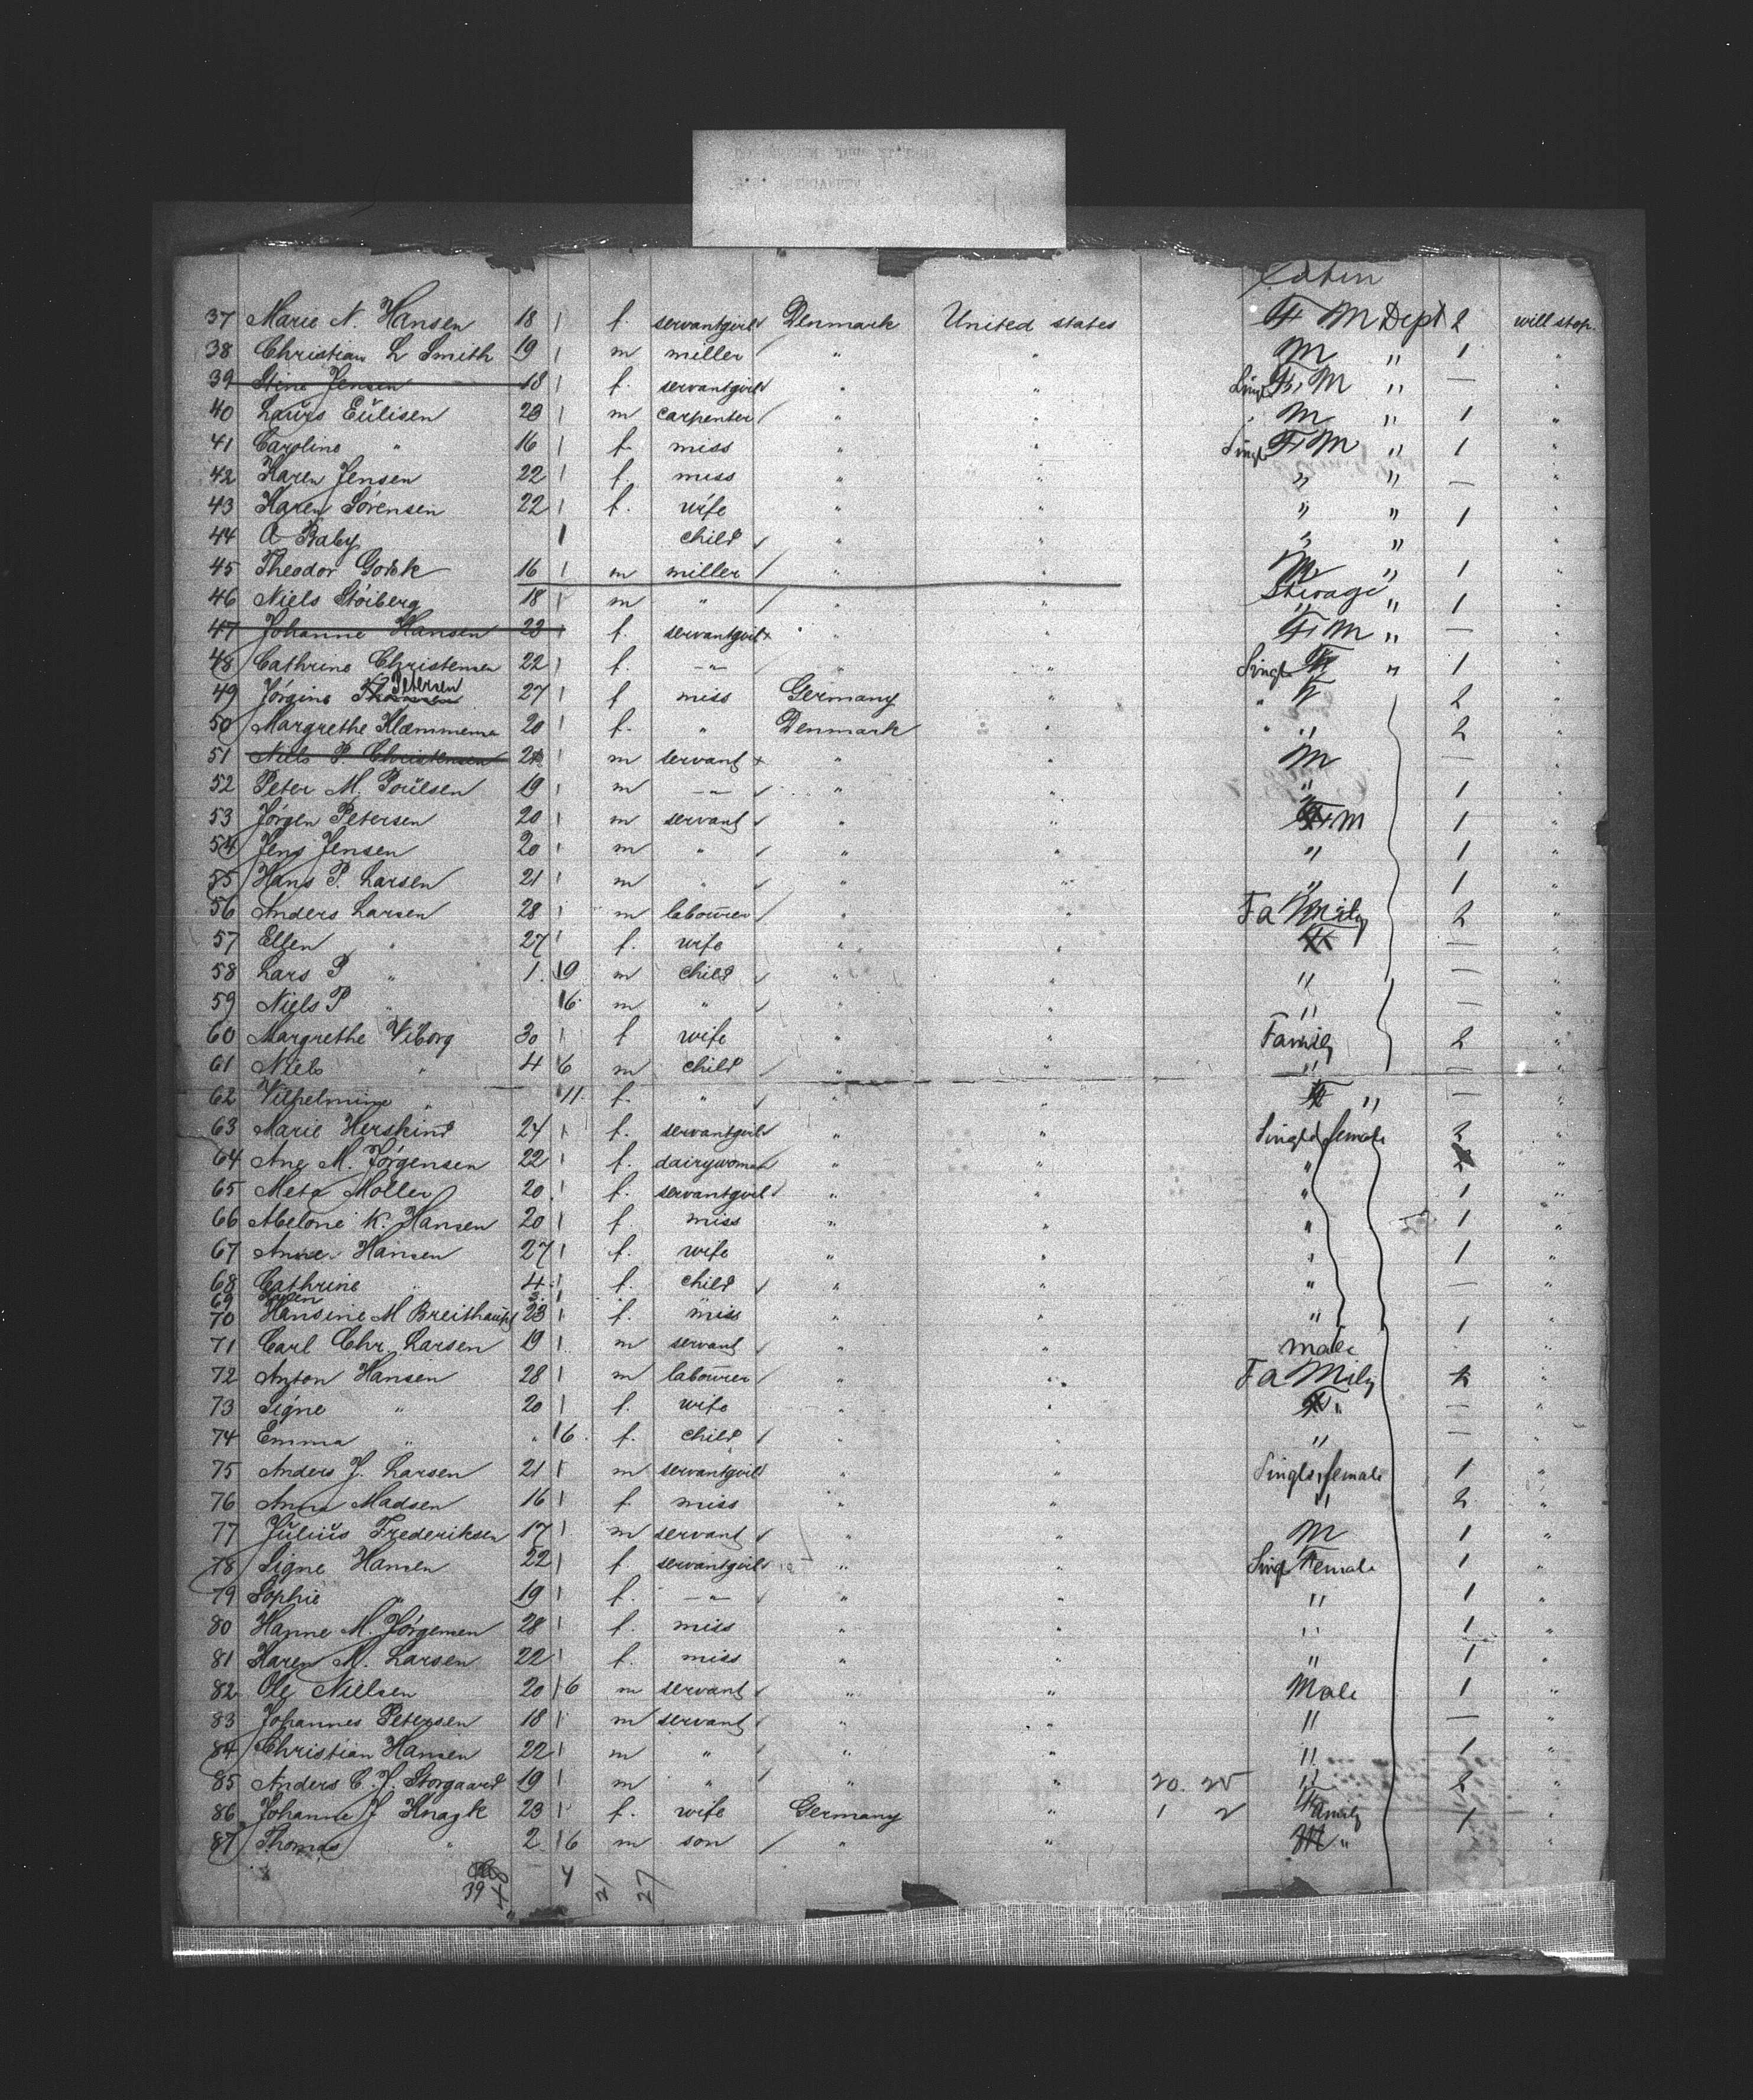 Cabin
37 Marie N. Hansen 18 f. servantgirl Denmark United states F M Dept 2 will stop.
38 Christian L Smith 19 m miller " " M " 1 "
39 Stine Jensen 18 f. servantgirl " " Singl F, M " —
40 Laurs Eŭlisen 23 m carpenter " " M " 1 "
41 Caroline " 16 f. miss " " Singl F, M " 1 "
42 Karen Jensen 22 f. miss " " " " — "
43 Karen Sörensen 22 f. wife " " " " 1 "
44 A Baby child " " " " "
45 Theodor 16 m miller " " M " 1 "
46 Niels Stöiberg 18 m " " " Sterage " 1 "
47 Johanne Hansen 23 f. servantgirl " " F, M " — "
48 Cathrine Christensen 22 f. —"— " " Singl F " 1 "
49 Jörgine Petersen 27 f miss Germany " " F 2 "
50 Margrethe 20 f. " Denmark " " " 2 "
51 Niels P. Christensen m servant " " M — "
52 Peter M. Poŭlsen 19 m —"— " " " 1 "
53 Jörgen Petersen 20 m servant " " F, M 1 "
54 Jens Jensen 20 m " " " " 1 "
55 Hans P. Larsen 21 m " " " " 1 "
56 Anders Larsen 28 m laboŭrer " " FaMily 2 "
57 Ellen " 27 f. wife " " — "
58 Lars P " 1. 9 m child " " " — "
59 Niels P " 6 m " " " " — "
60 Margrethe Viborg 30 f wife " " Family 2 "
61 Niels " 4 6 m child " " " — "
62 Vilhelmine " 11. f. " " " F " — "
63 Marie Herskind 24 f. servantgirl " " Singel female 2 "
64 Ane M. Jörgensen 22 f. dairywoman " " " "
65 Meta Möller 20 f. servantgirl " " " 1 "
66 K. Hansen 20 f. miss " " " 1 "
67 Anne Hansen 27 f. wife " " " 1 "
68 Cathrine " 4 f. child " " " — "
69 3
70 Hansine M Breithaupt 23 f. miss " " " 1 "
71 Carl Chr. Larsen 19 m servant " " male "
72 Anton Hansen 28 m laboŭrer " " FaMily "
73 Signe " 20 f. wife " " " — "
74 Emma " " 6. f. child " " " — "
75 Anders J. Larsen 21 m servantgirl " " Single, female 1 "
76 Anna Madsen 16 f. miss " " " 2 "
77 Jŭliŭs Frederiksen 17 m servant " " M 1 "
78 Signe Hansen 22 f servantgirl " " Singl Female 1 "
79 Sophie " 19 f. —"— " " " 1 "
80 Hanne M. Jörgensen 28 f. miss " " " 1 "
81 Karen M. Larsen 22 f. miss " " " 1 "
82 Ole Nielsen 20 6 m servant " " Male 1 "
83 Johannes Petersen 18 m servant " " " — "
84 Christian Hansen 22 m " " " " 1 "
85 Anders C. J. Storgaard 19 m " " " 20. 25 " 2 "
86 Johanne J 23 f. wife Germany " 1 2 Family 1 "
87 Thomas " 2 6 m son " " M " "
39 4 21 27